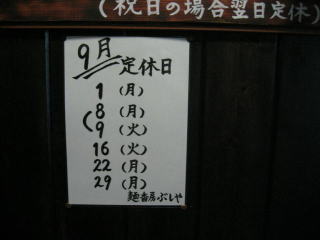 (祝日の場合翌日定休)
9月
定休日
1(月)
8(月)
9(火)
16(火)
22(月)
29(月)
麺香房ぶしや